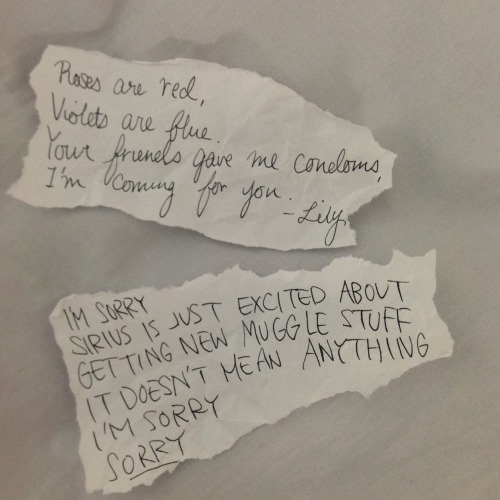 Roses are red,
Violets are blue.
Your friends gave me condoms,
I'm coming for you.
-Lily
I'M SORRY
SIRIUS IS JUST EXCITED ABOUT
GETTING NEW MUGGLE STUFF
IT DOESN'T MEAN ANYTHING
I'M SORRY
SORRY